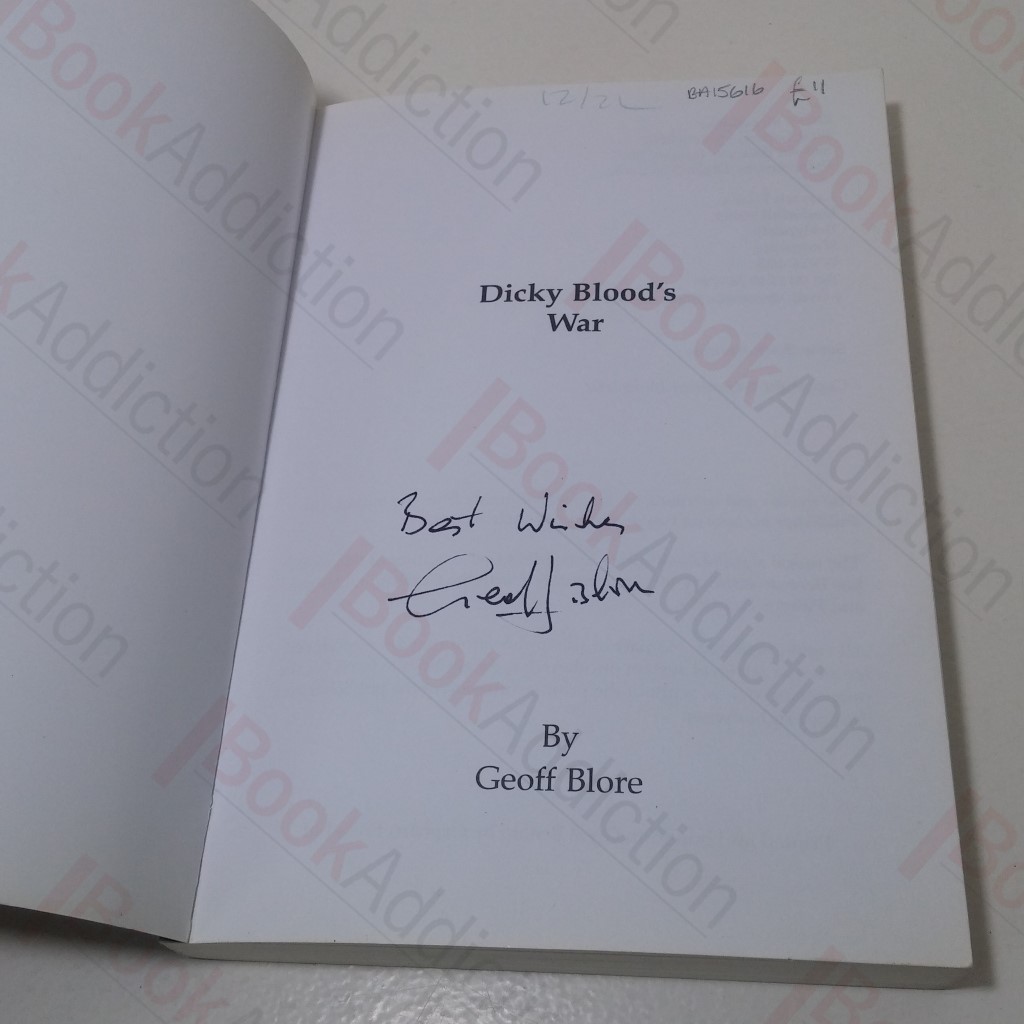 12/22 BA15616 £11
Dicky Blood's
War
Best Wishes
Geoff Blore
By
Geoff Blore
BookAddiction